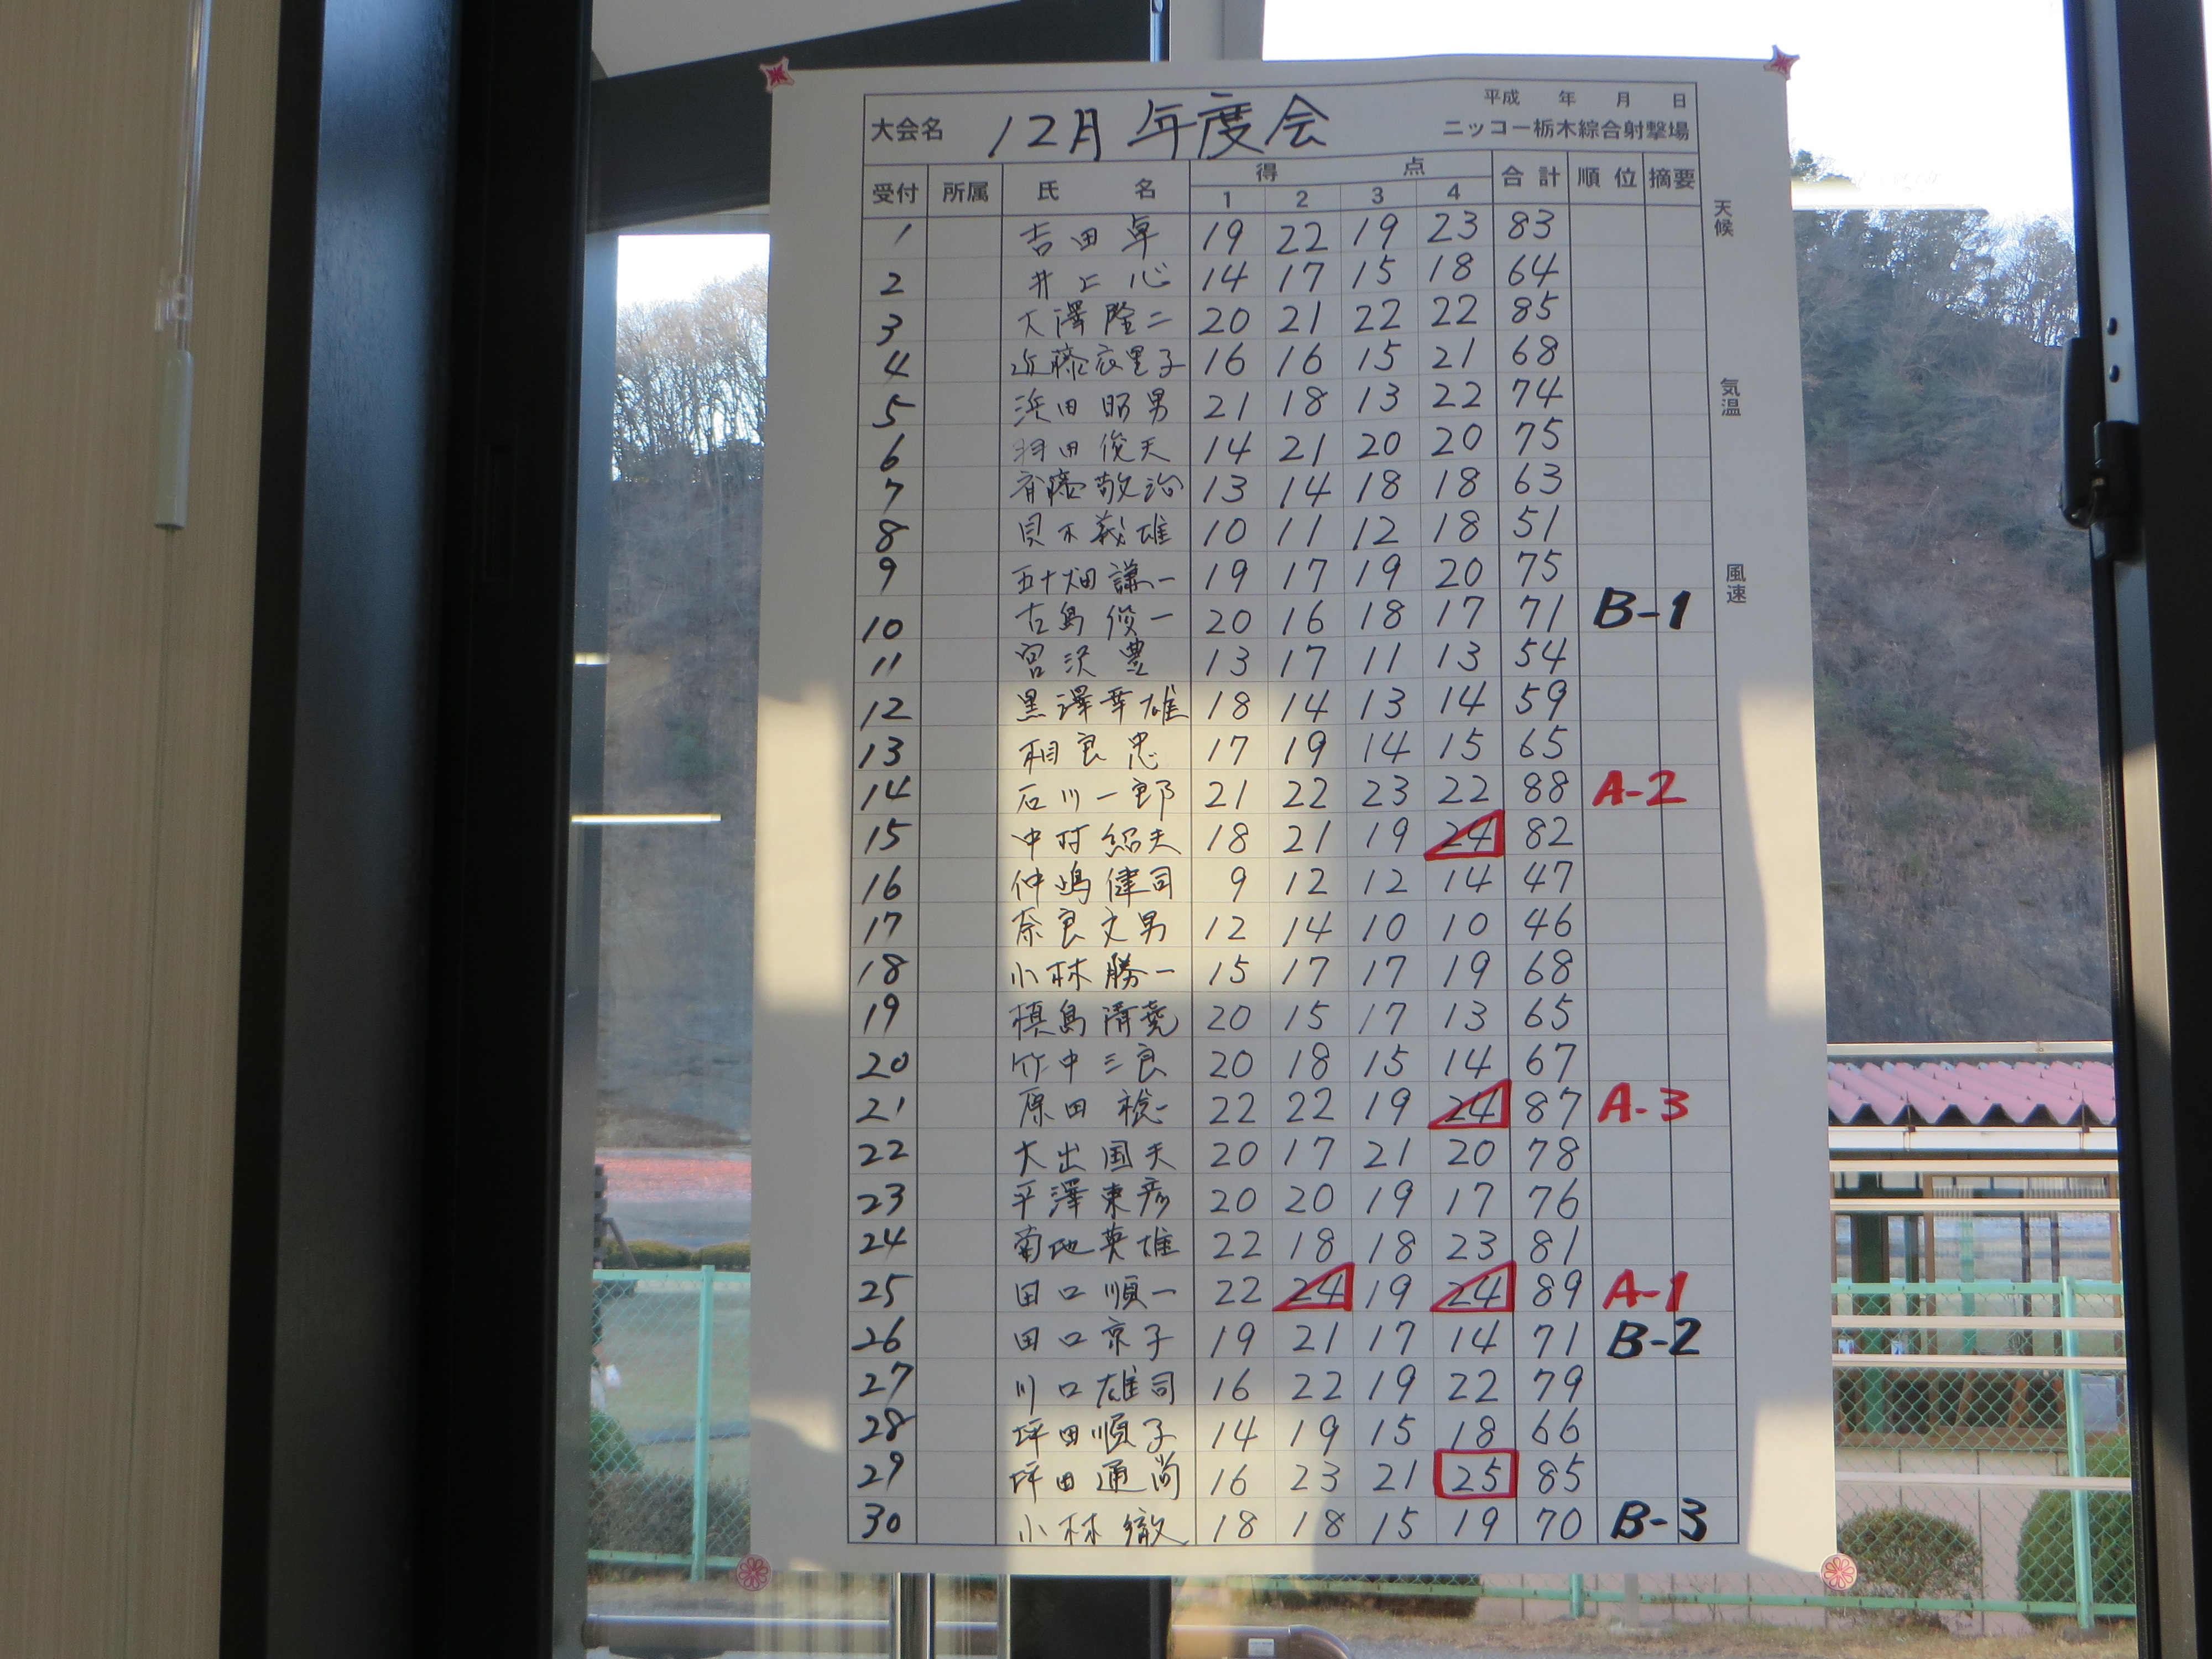 平成 年 月 日
大会名 12月 年度会 ニッコー栃木綜合射撃場
受付 所属 氏名 得点 合計 順位 摘要
1 2 3 4
天候
気温
風速
1 吉田卓 19 22 19 23 83
2 井上心 14 17 15 18 64
3 大澤隆二 20 21 22 22 85
4 近藤衣里子 16 16 15 21 68
5 浜田昭男 21 18 13 22 74
6 羽田俊夫 14 21 20 20 75
7 斉藤敬治 13 14 18 18 63
8 貝木義雄 10 11 12 18 51
9 五十畑謙一 19 17 19 20 75
10 古島俊一 20 16 18 17 71 B-1
11 宮沢豊 13 17 11 13 54
12 黒澤幸雄 18 14 13 14 59
13 相良忠 17 19 14 15 65
14 石川一郎 21 22 23 22 88 A-2
15 中村紹夫 18 21 19 24 82
16 仲嶋健司 9 12 12 14 47
17 奈良文男 12 14 10 10 46
18 小林勝一 15 17 17 19 68
19 槙島清堯 20 15 17 13 65
20 竹中三良 20 18 15 14 67
21 原田 一 22 22 19 24 87 A-3
22 大出国夫 20 17 21 20 78
23 平澤東彦 20 20 19 17 76
24 菊地英雄 22 18 18 23 81
25 田口順一 22 24 19 24 89 A-1
26 田口京子 19 21 17 14 71 B-2
27 川口雄司 16 22 19 22 79
28 坪田順子 14 19 15 18 66
29 坪田通尚 16 23 21 25 85
30 小林徹 18 18 15 19 70 B-3